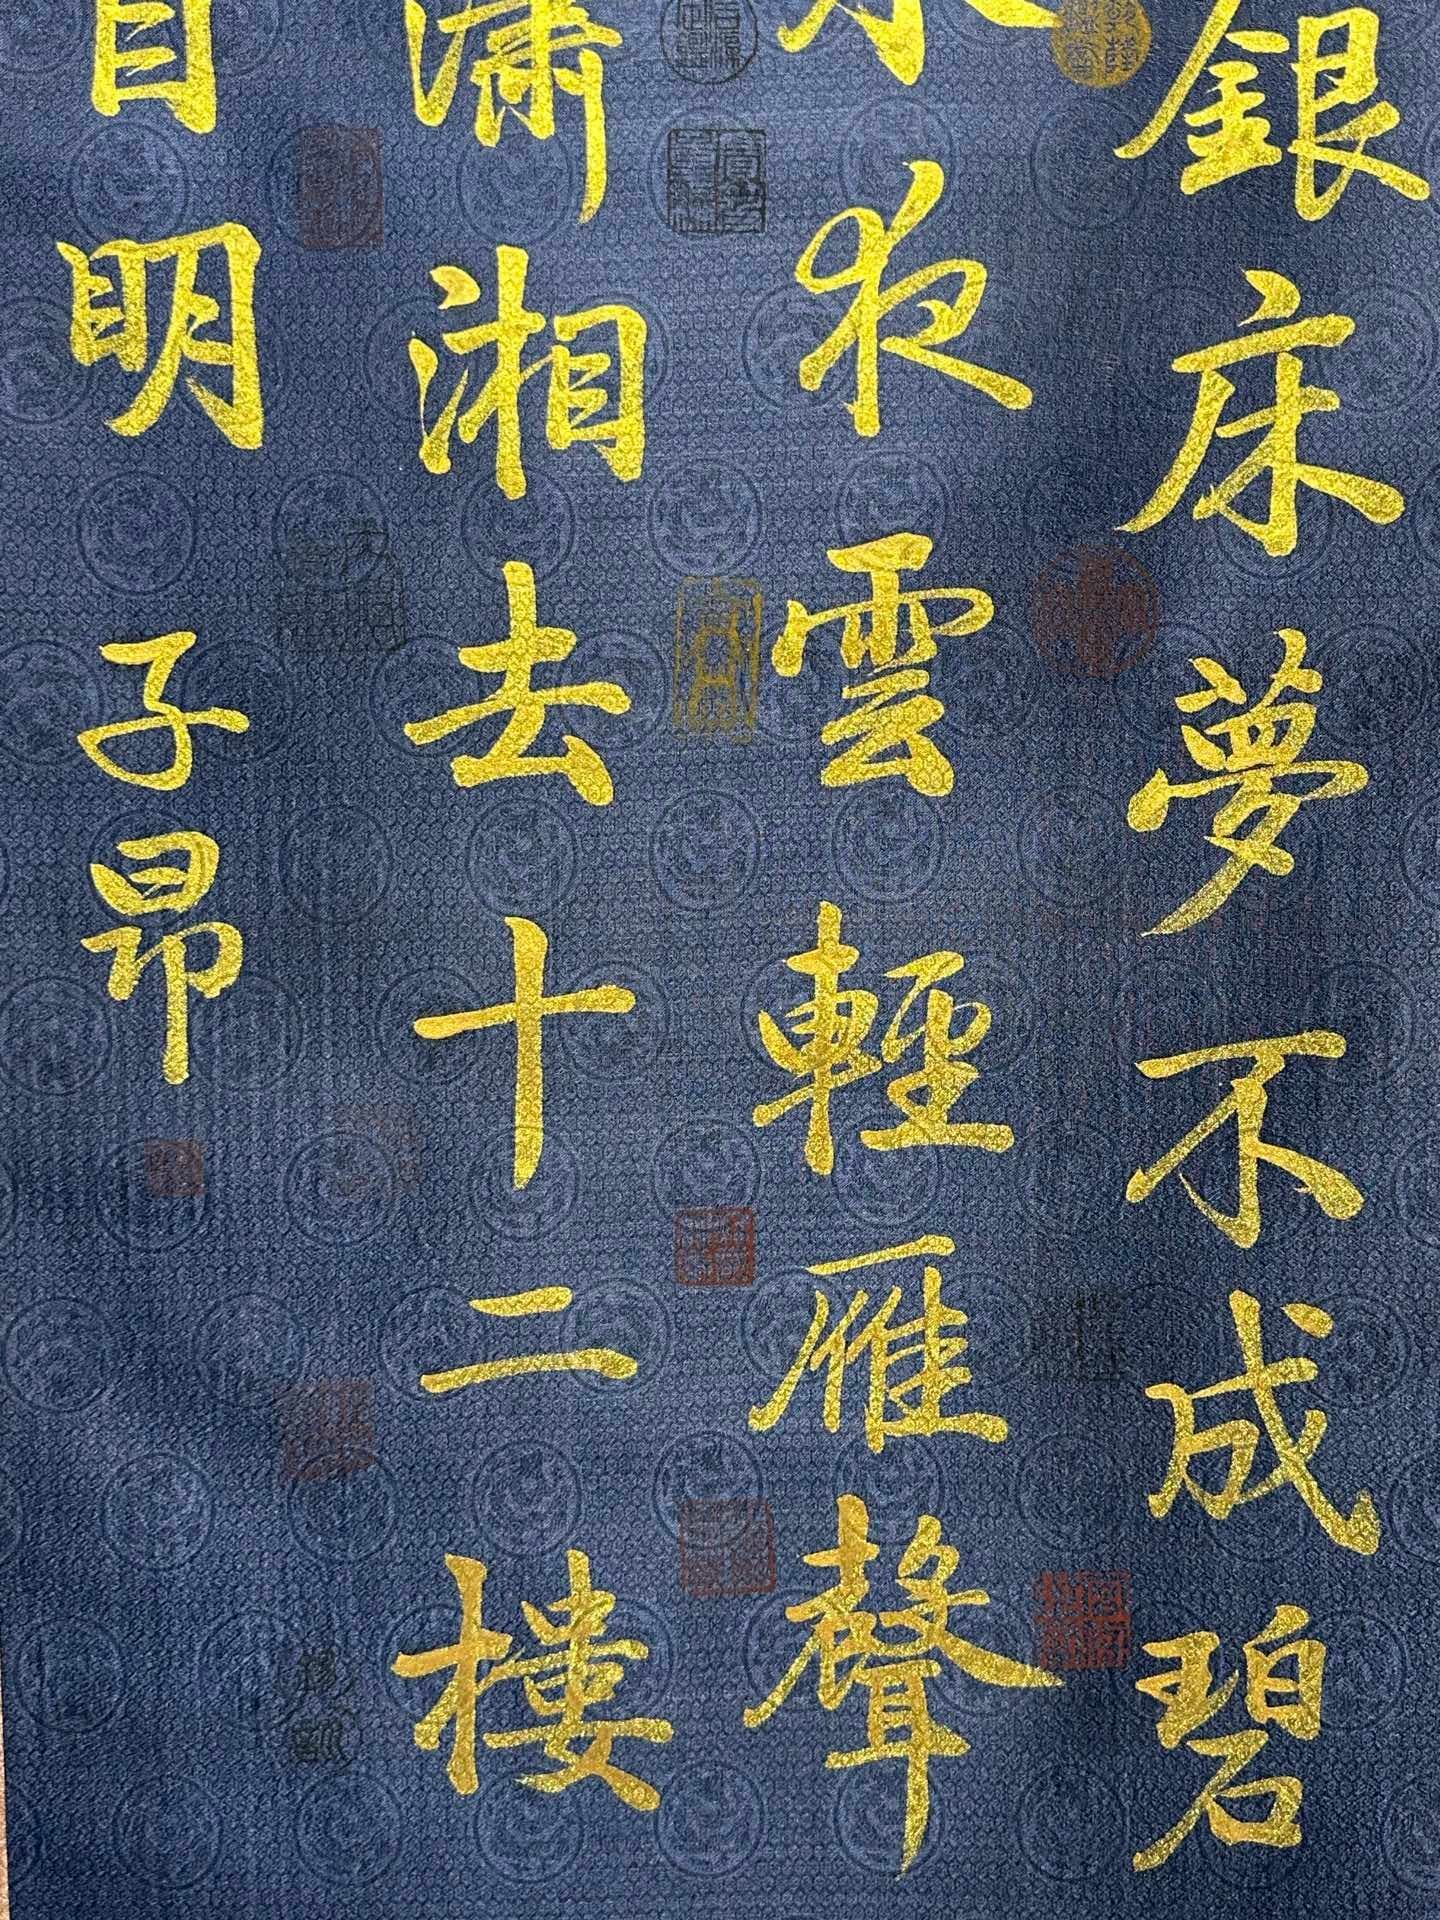 銀床夢不成碧
夜雲輕雁聲
瀟湘去十二樓
自明
子昂